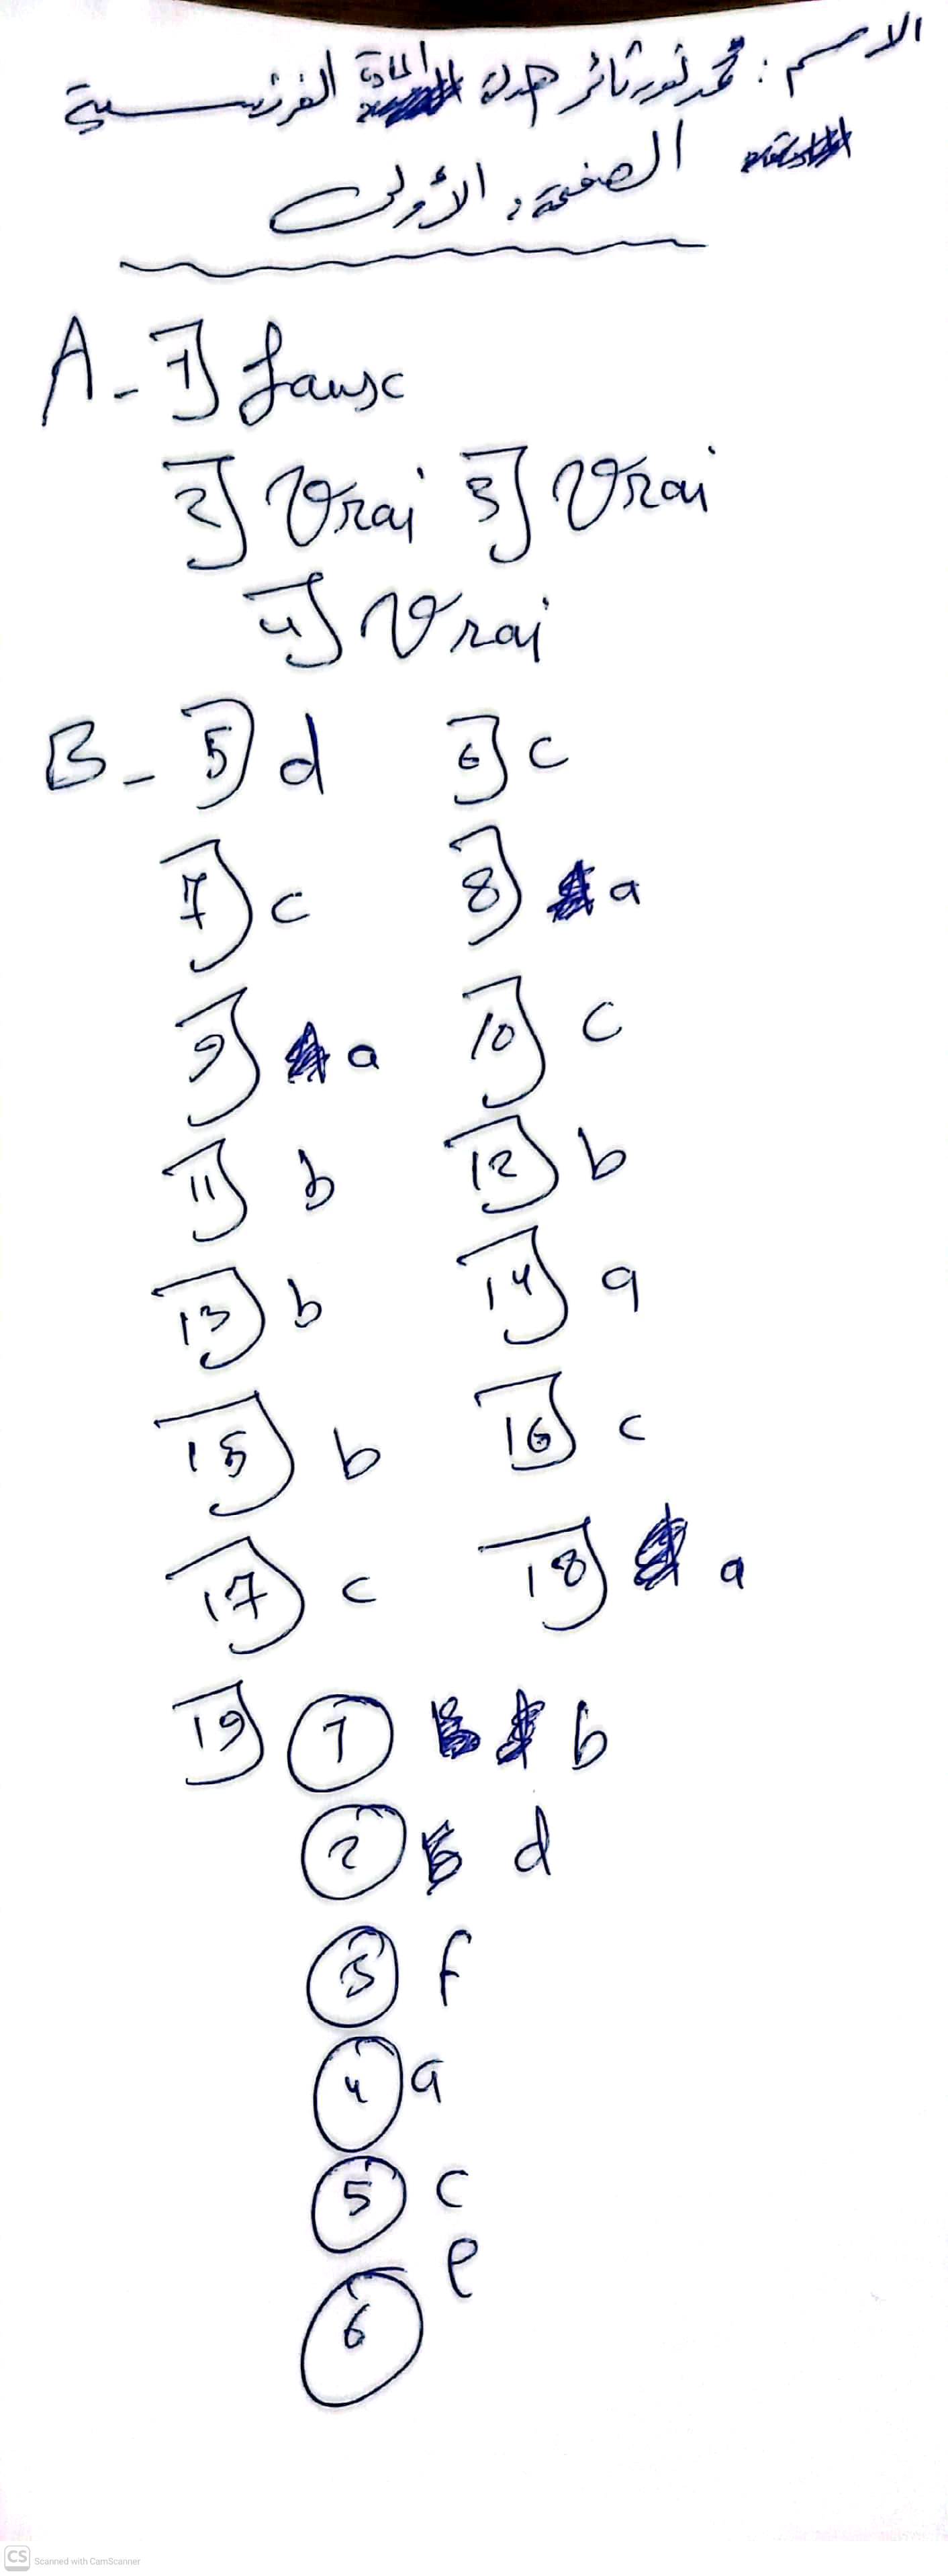 الاسم : محمد نور ثائر المادة الفرنسية
الصفحة : الأولى
A- 1] fausc
2] Vrai 3] Vrai
4] Vrai
B- 5] d 6] c
7] c 8] a
9] a 10] c
11] b 12] b
13] b 14] a
15] b 16] c
17] c 18] a
19] 1 b
2 d
3 f
4 a
5 c
6 e
CS Scanned with CamScanner